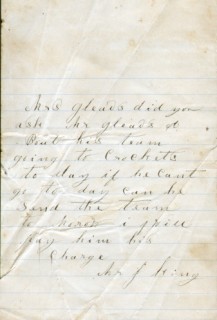 Mrs Gleads did you
ask Mr Gleads a
Bout his team
going to Crockets
to day if he cant
go to day can he
send the team
to morow i will
pay him his
Charge
Mr J King